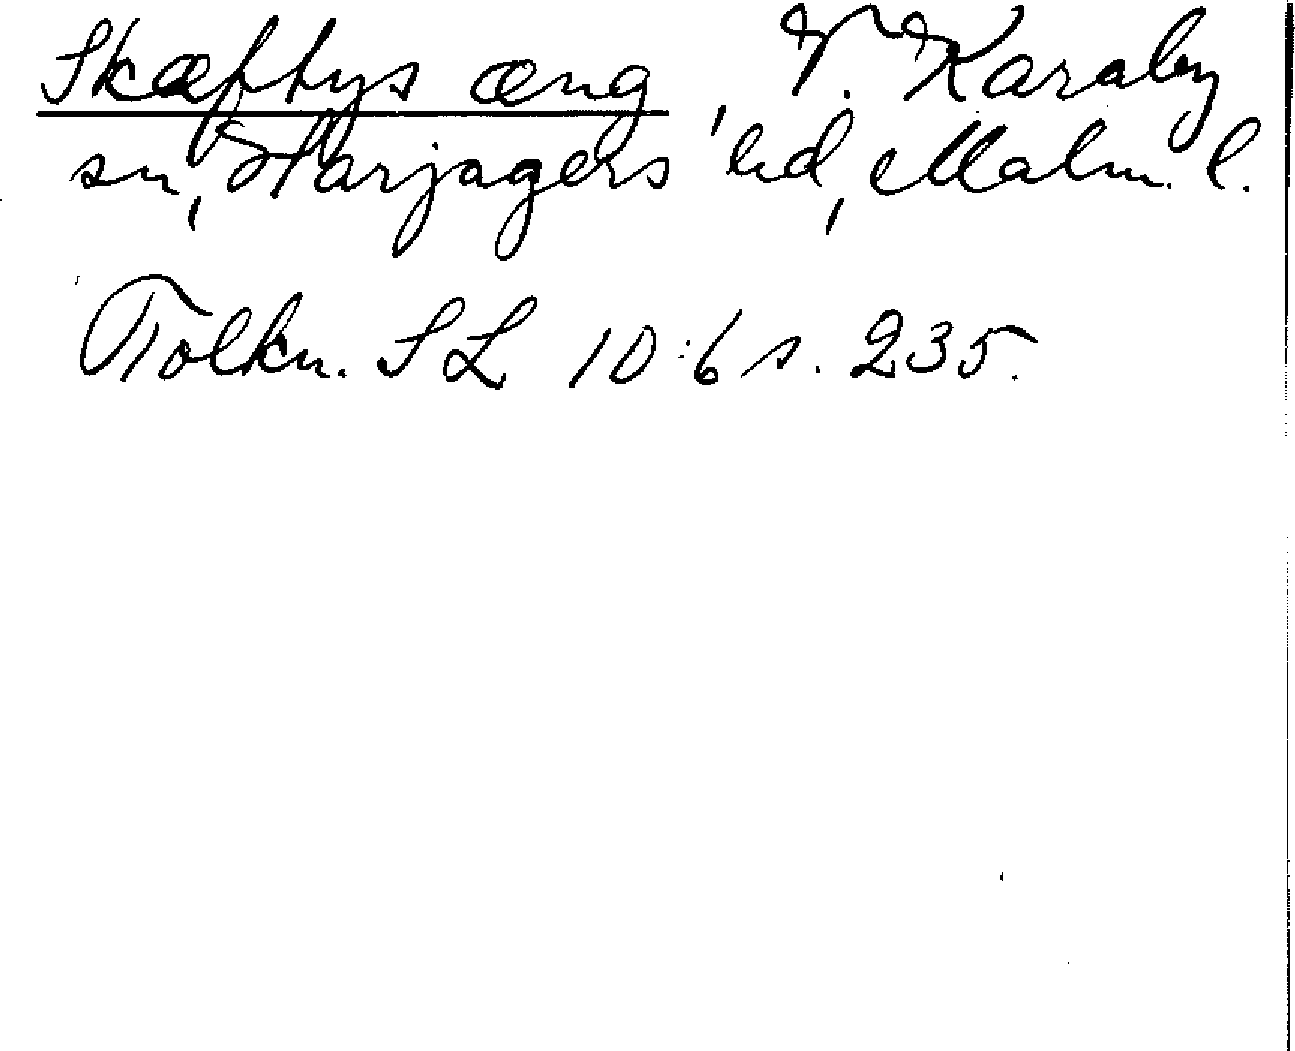 Skæftys æng, V. Karaby
sn, Harjagers hd, Malm. l.
Tolkn. SL 10:6 s. 235.